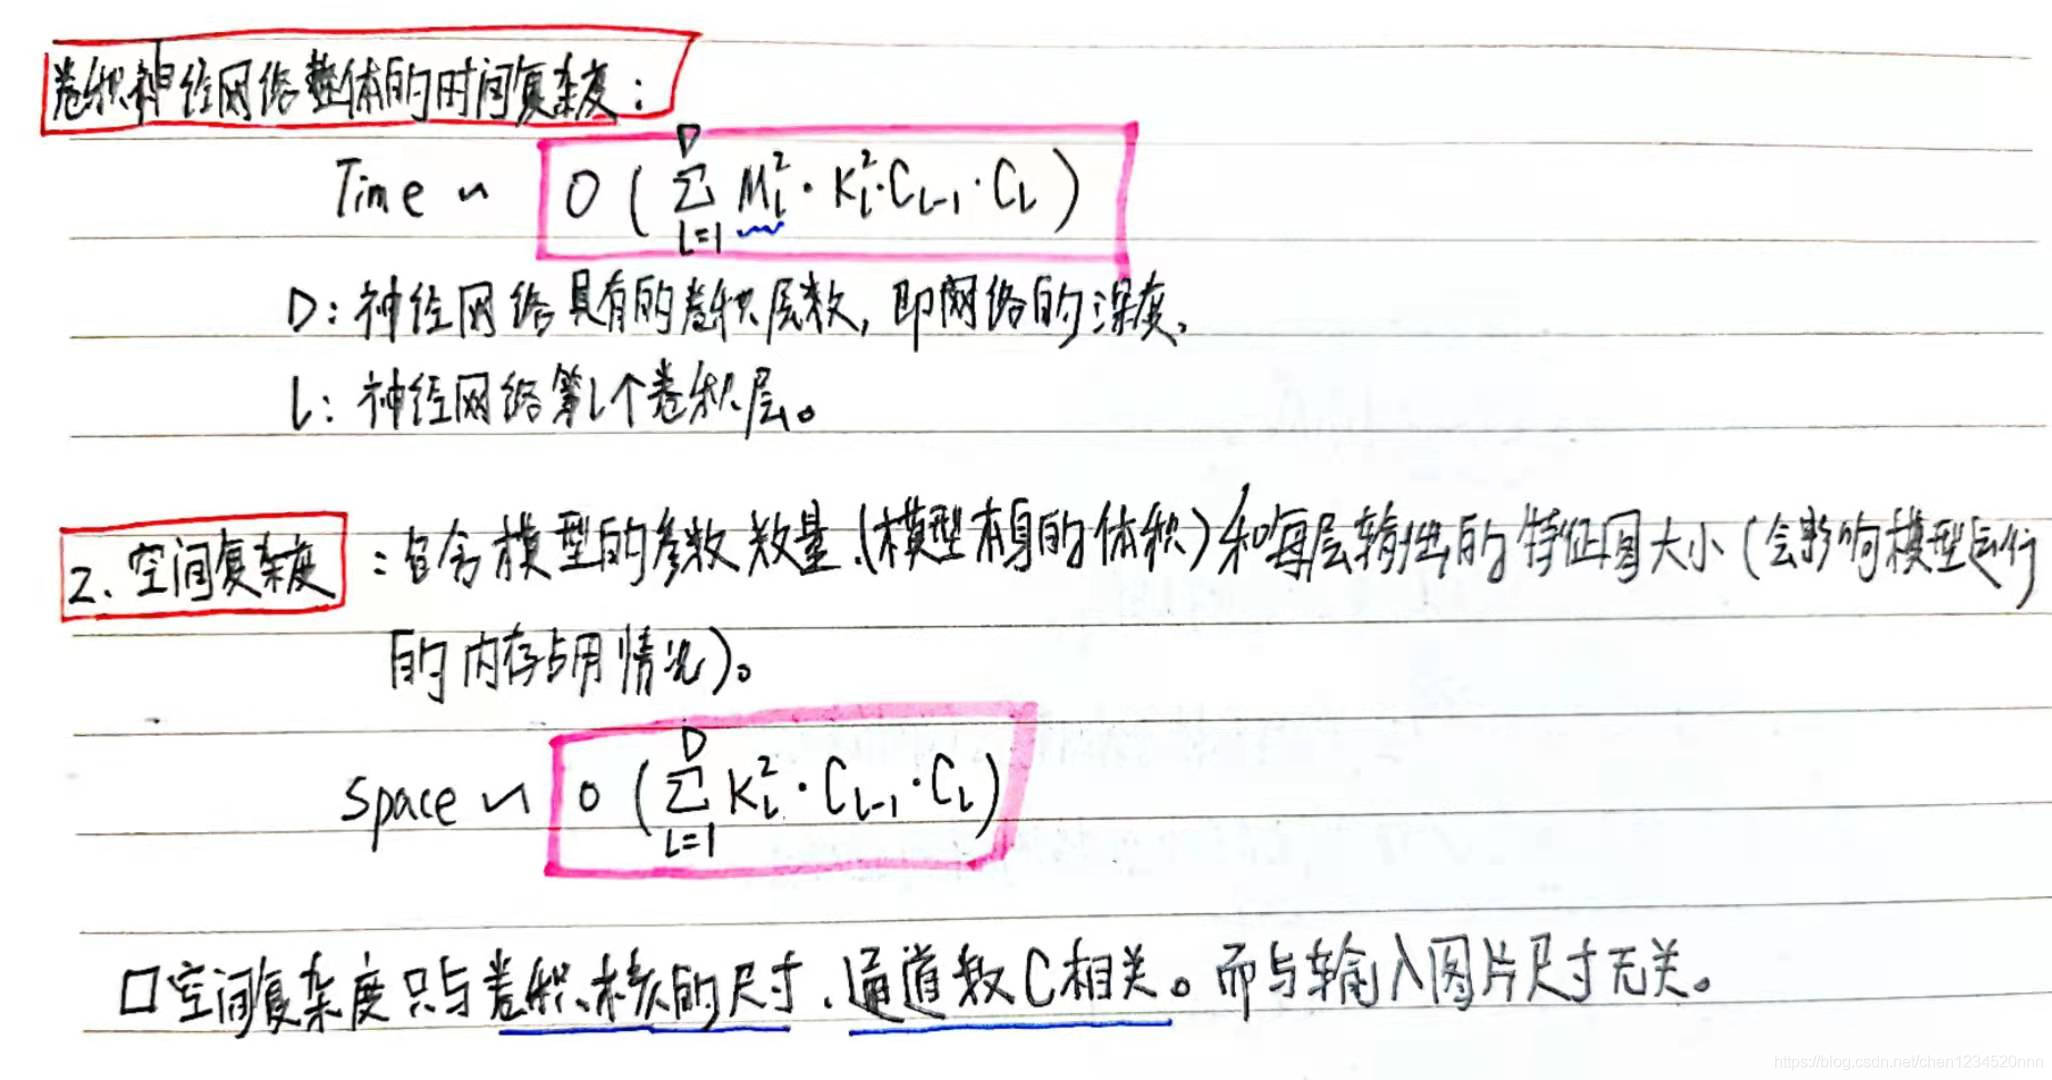 卷积神经网络整体的时间复杂度:
Time ~ O ( ∑_{l=1}^{D} M_l^2 · K_l^2 · C_{l-1} · C_l )
D: 神经网络具有的卷积层数, 即网络的深度。
l: 神经网络第l个卷积层。
2、空间复杂度 : 包含模型的参数数量(模型本身的体积)和每层输出的特征图大小(会影响模型运行
的内存占用情况)。
Space ~ O ( ∑_{l=1}^{D} K_l^2 · C_{l-1} · C_l )
口空间复杂度只与卷积核的尺寸、通道数C相关。而与输入图片尺寸无关。
https://blog.csdn.net/chen1234520nnn